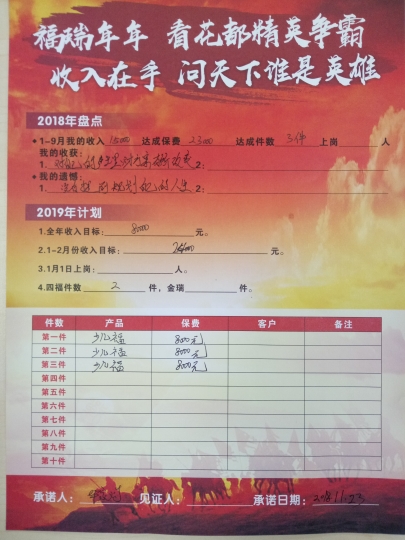 福瑞年年 看花都精英争霸
收入在手 问天下谁是英雄
2018年盘点
1-9月我的收入 达成保费 2300 达成件数 3件 上岗 人
我的收获:
1. 2:
我的遗憾:
1. 2:
2019年计划
1.全年收入目标: 8000 元。
2.1-2月份收入目标: 元。
3.1月1日上岗: 人。
4.四福件数 2 件,金瑞 件。
件数 产品 保费 客户 备注
第一件 少儿福 8000元
第二件 少儿福 8000元
第三件 少儿福 8000元
第四件
第五件
第六件
第七件
第八件
第九件
第十件
承诺人: 见证人: 承诺日期: 2018.11.23